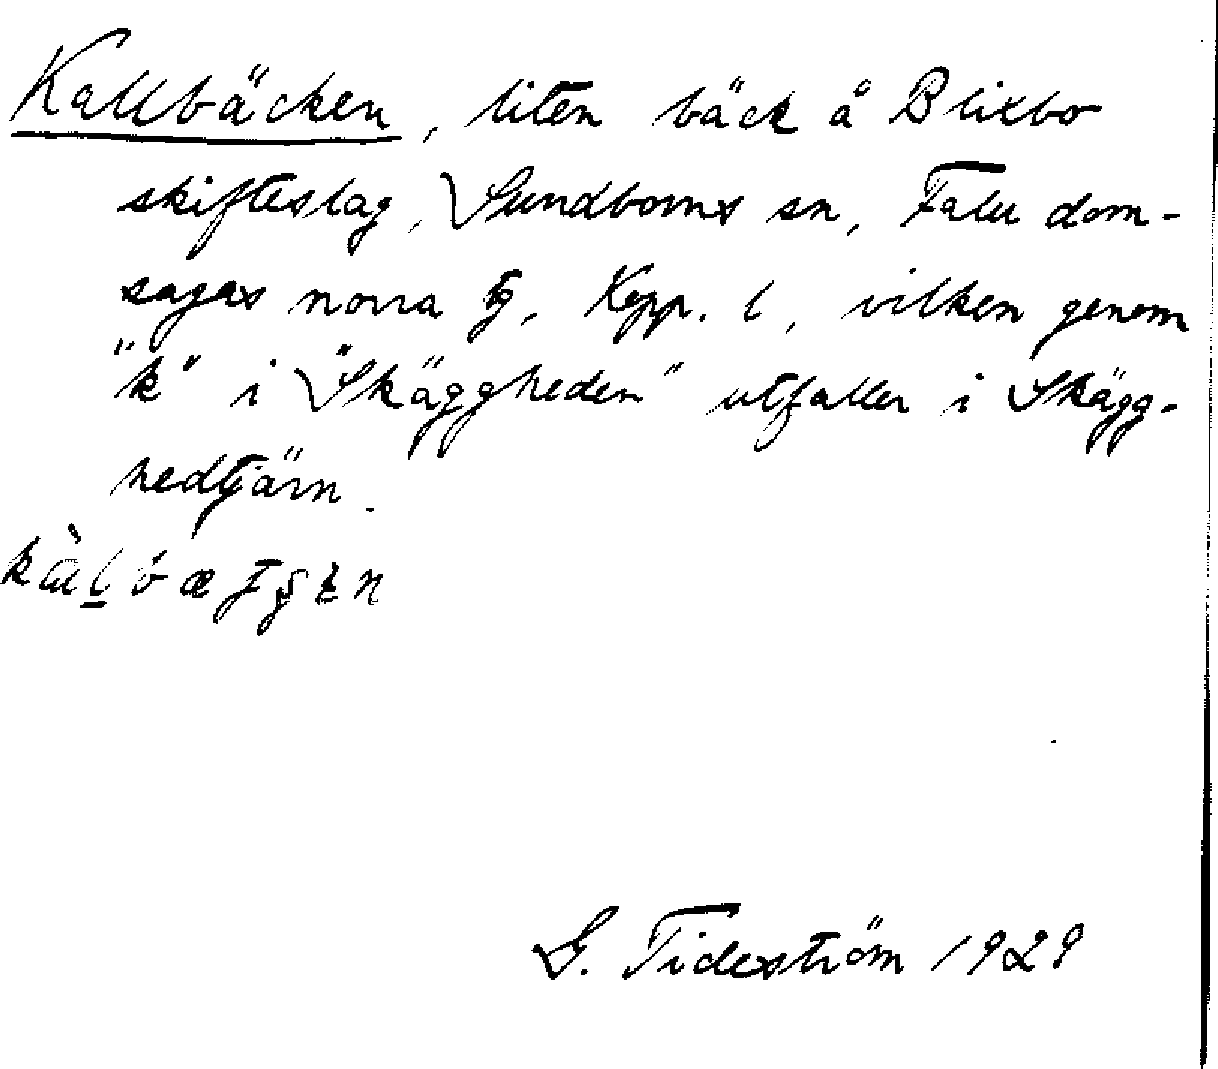 Kallbäcken, liten bäck å Blixbo
skifteslag, Sundborns sn, Falu dom-
sagas norra tg, Kopp. l, vilken genom
"k" i "Skäggheden" utfaller i Skägg-
hedtjärn.
G. Tideström 1929